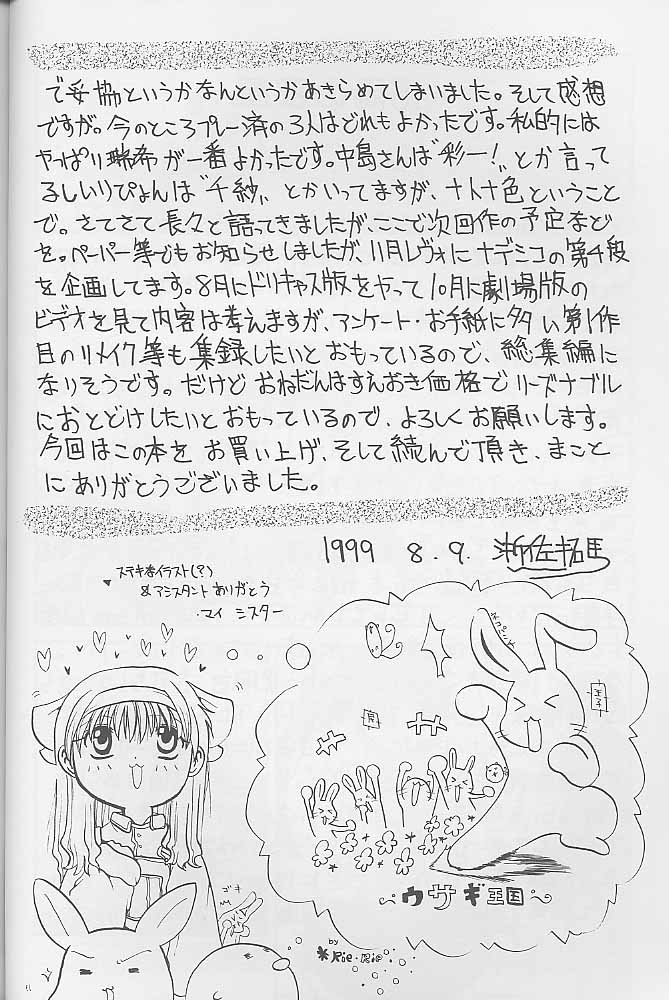 で妥協というかなんというかあきらめてしまいました。そして感想
ですが。今のところプレー済の3人はどれもよかったです。私的には
やっぱり瑞希が一番よかったです。中島さんは"彩一!"とか言って
るしいりぴょんは"千紗"とかいってますが、十人十色ということ
で。さてさて長々と語ってきましたが、ここで次回作の予定など
を。ペーパー等でもお知らせしましたが、11月レヴォにナデシコの第4段
を企画してます。8月にドリキャス版をやって10月に劇場版の
ビデオを見て内容は考えますが、アンケート・お手紙に多い第1作
目のリメイク等も集録したいとおもっているので、総集編に
なりそうです。だけど おねだんはすえおき価格でリーズナブル
におとどけしたいとおもっているので、よろしくお願いします。
今回はこの本を お買い上げ、そして続んで頂き、まこと
にありがとうございました。
1999 8.9.
ステキなイラスト(?)
&アシスタントありがとう
・マイ シスター
王子
〜ウサギ王国〜
ゴキ
by
*Rie・Rie